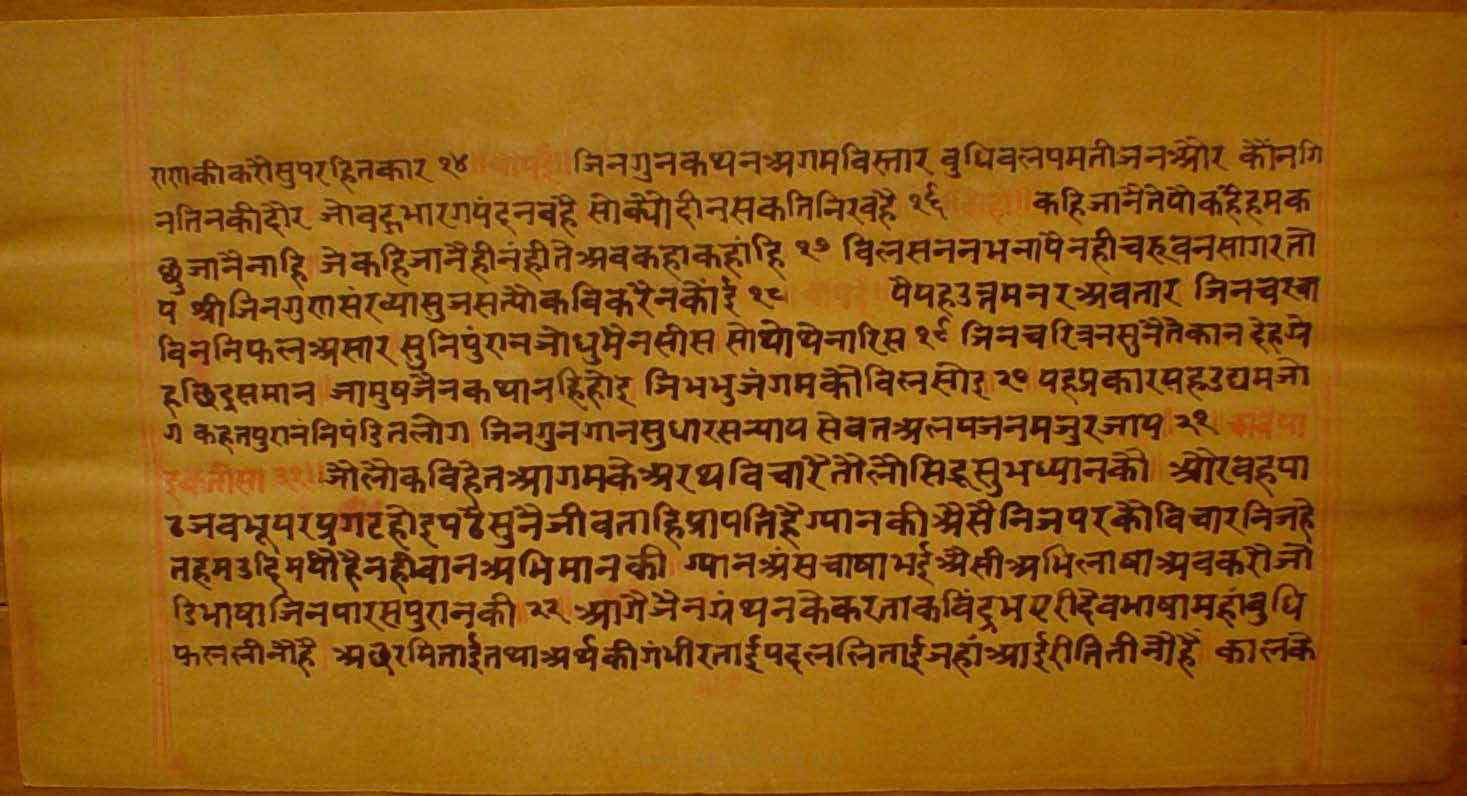 राणाकीकरौसुपरहितकार १४ जिनगुनकथनअगमविस्तार बुधिबलपमतीजनऔर कौंनगि
नतिनकीदौर जोबद्रभारगपंदनबहै सोक्यौदीनसकतिनिरबहै १६ ॥दोहा॥ कहिजानैतेपौकहैहमक
छुजानैनाहि जेकहिजानैहीनंहीतेअबकहाकहांहि १७ विलसननभनापैनहीचरुवनसागरतो
प श्रीजिनगुणसंख्यासुजसत्यौकविकरैनकोई १८ पैपहउत्तमनरअवतार जिनचरचा
विननिफलअसार सुनिपुंरानजोधुमैनसीस सोथोथेनारिस १९ जिनचरित्रनसुनैतैकान देहग्रे
हछिद्रसमान जामुषजैनकथानहिहोइ जिभभुजंगमकौविलसोइ २० पहप्रकारपहउद्यमजो
ग कहतपुरानंनिपंडितलोग जिनगुनगानसुधारसन्याय सेवतअलपजनमजुरजाय २१
इकतीसा २१॥ जौलौकविहेतआगमकेअरथविचारैतौलौसिद्धसुभध्यानकौ औरवहपा
ठजबभूपरप्रगटहोइपढैसुनैजीवताहिप्रापतिहैग्यानकी अैसैनिजपरकौविचारनिजहे
तहमउदिमपौहैनहीबानअभिमानकी ग्यानअंसचाषाभईअैसीअभिलाषाअबकरौजो
डिभाषाजिनपारसपुरानकी २२ आगैजैनग्रंथनकेकरताकविंद्रभएरीदेवभाषामहांबुधि
फललीनौहै अछरमिताईतथाअर्थकीगंभीरताईपदललिताईजहांआईरीतितीनौहै कालके